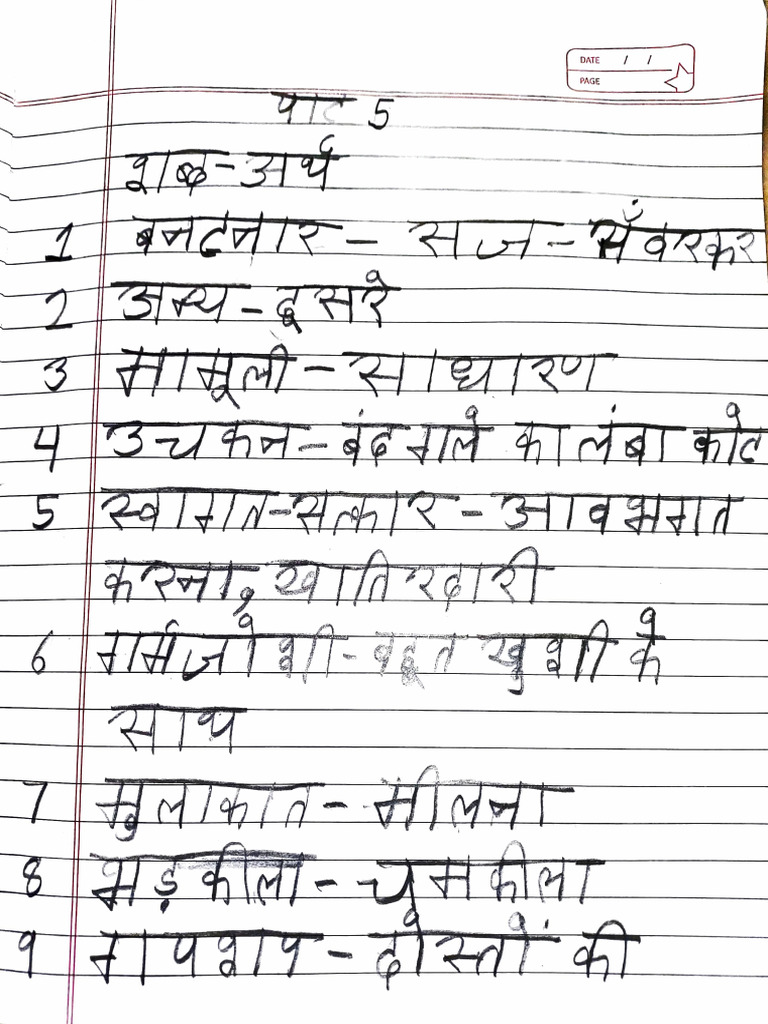 DATE / /
PAGE
पाट 5
शब्द-अर्थ
1 बनटनार - सज-सँवरकर
2 अन्य - दूसरे
3 मामूली - साधारण
4 उचकन - बंद गले का लंबा कोट
5 स्वागत-सत्कार - आवभगत
करना, खातिरदारी
6 गर्मजोशी - बहुत खुशी के
साथ
7 मुलाकात - मीलना
8 भड़कीला - चमकीला
9 गपशप - दोस्तों की